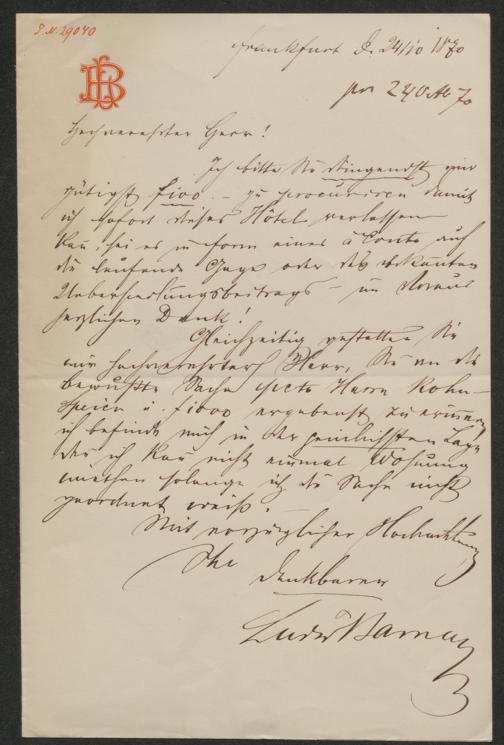 I. N. 29040
LB
Frankfurt d. 24/10 1870
pr 24 Okt 70
Hochverehrter Herr!
Ich bitte Sie dringendst mir
gütigst f 100.– zu procuriren damit
ich sofort dieses Hôtel verlassen
kan, sei es in Form eines à Conto auf
die laufende Gage oder des bekannten
Uebersiedlungsbeitrags – im Voraus
herzlichen Dank!
Gleichzeitig gestatten Sie
mir hochverehrter Herr, Sie an die
bewußte Sache pcto Herrn Kohn-
Speier u. f 1000 ergebenst zu erinnern
ich befinde mich in der peinlichsten Lage
den ich kan nicht einmal Wohnung
miethen solange ich die Sache nicht
geordnet weiß.
Mit vorzüglicher Hochachtung
Ihr
dankbarer
Ludw Barnay